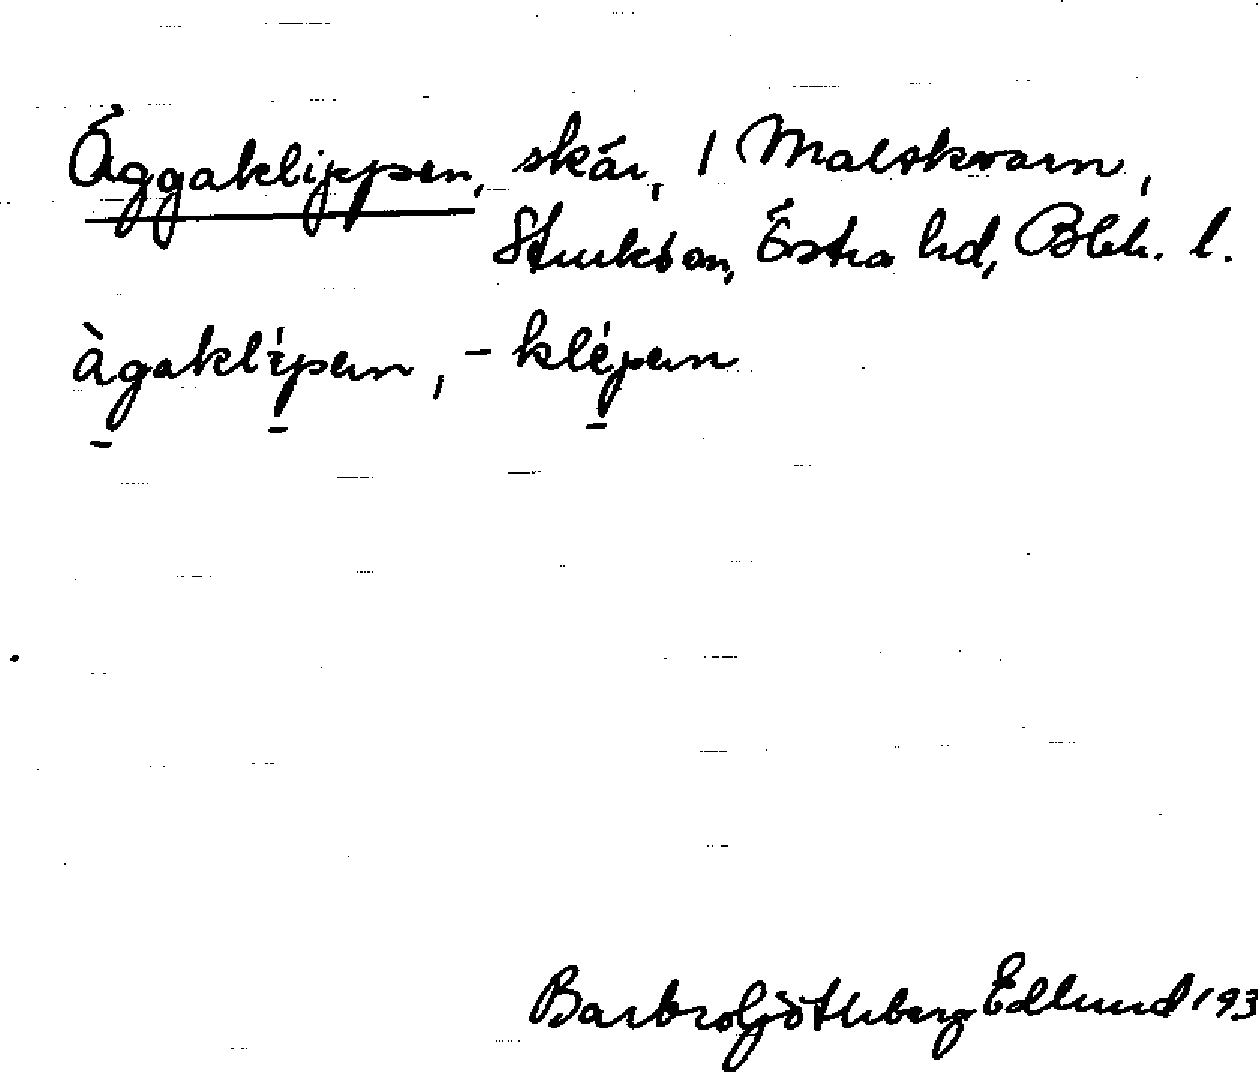 Äggaklippen, skär, 1 Malskvarn,
Sturköan, Östra hd, Blek. l.
àgaklípen, - klépen
Barbro Götherberg Edlund 193